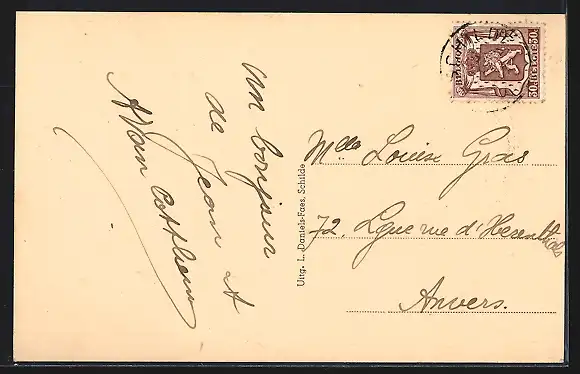 Un bonjour
de Jean et
A Van Cotthem
Uitg. L. Daniels-Faes, Schilde
Mlle Louise Gras
72, Lgue rue d'Herenthals
Anvers.
BELGIQUE
BELGIË
50
50